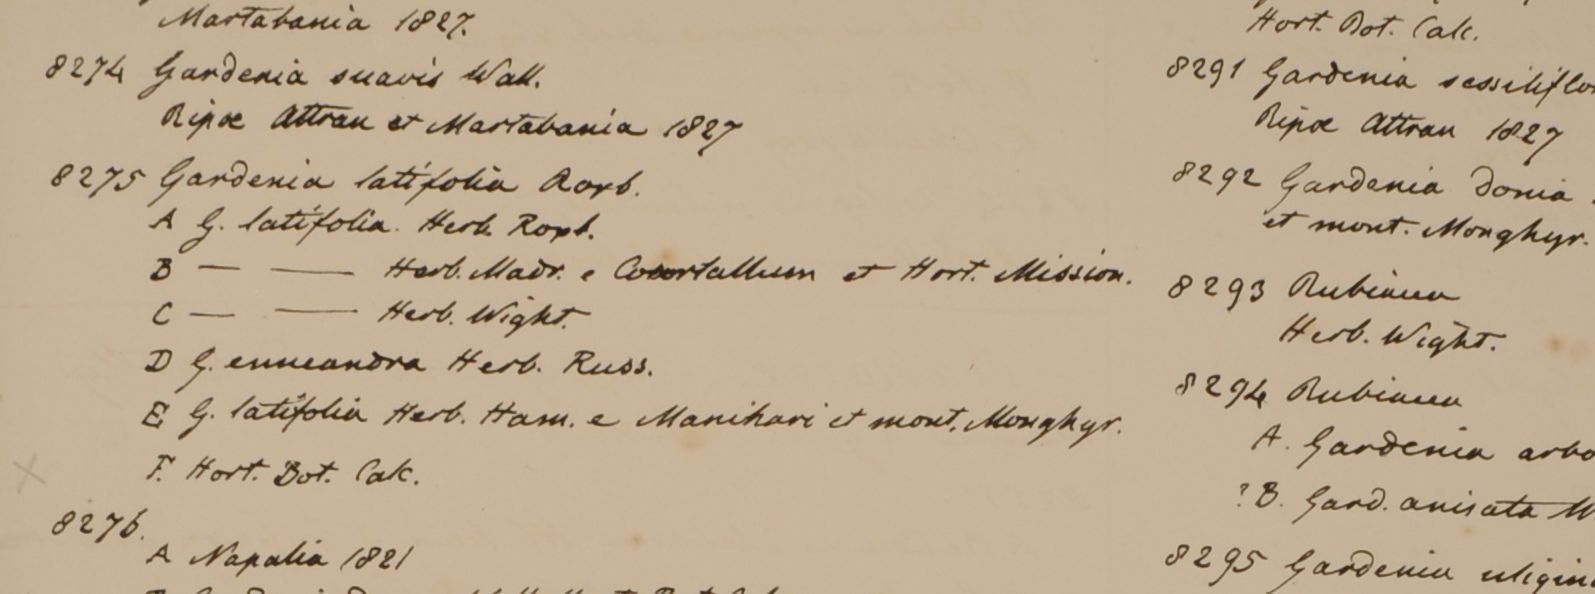 Martabania 1827.
8274 Gardenia suavis Wall.
Ripae Attran et Martabania 1827
8275 Gardenia latifolia Roxb.
A G. latifolia. Herb. Roxb.
B — — Herb. Madr. e Courtallum et Hort. Mission.
C — — Herb. Wight.
D G. enneandra Herb. Russ.
E G. latifolia Herb. Ham. e Manihari et mont. Monghyr.
F. Hort. Bot. Calc.
8276.
A Napalia 1821
Hort. Bot. Calc.
8291 Gardenia sessiliflo
Ripae Attran 1827
8292 Gardenia Donia
et mont. Monghyr.
8293 Rubiacea
Herb. Wight.
8294 Rubiacea
A. Gardenia arbo
?B. Gard. anisata W
8295 Gardenia uligin